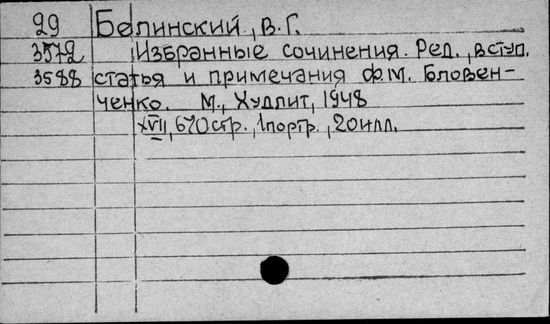 29 Белинский, В.Г.
3572 Избранные сочинения. Ред., вступ.
3588 статья и примечания Ф.М. Головен-
ченко. М., Худлит, 1948
XVII, 670 стр., 1 портр., 20 илл.